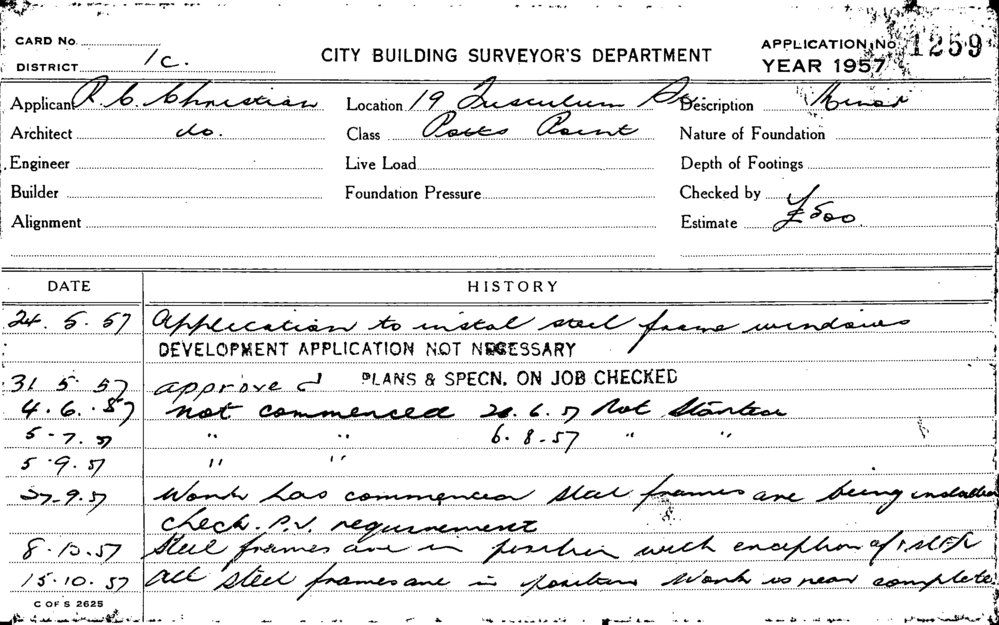 CARD No.
DISTRICT 1c.
CITY BUILDING SURVEYOR'S DEPARTMENT
APPLICATION No. 1259
YEAR 1957
Applicant R. C. Christian Location 19 Tusculum St. Description Minor
Architect do. Class Potts Point Nature of Foundation
Engineer Live Load Depth of Footings
Builder Foundation Pressure Checked by
Alignment Estimate £500
DATE HISTORY
24. 5. 57 Application to instal steel frame windows
DEVELOPMENT APPLICATION NOT NECESSARY
31 5 57 approved PLANS & SPECN. ON JOB CHECKED
4. 6. 57 not commenced 20. 6. 57 Not Started
5-7. 57 " " 6. 8-57 " "
5 9. 57 " "
27-9. 57 Work has commenced steel frames are being installed
check. P.V. requirement
8-10.57 Steel frames are in position with exception of 1st Flr
15.10.57 All steel frames are in position Work is near complete.
C OF S 2625